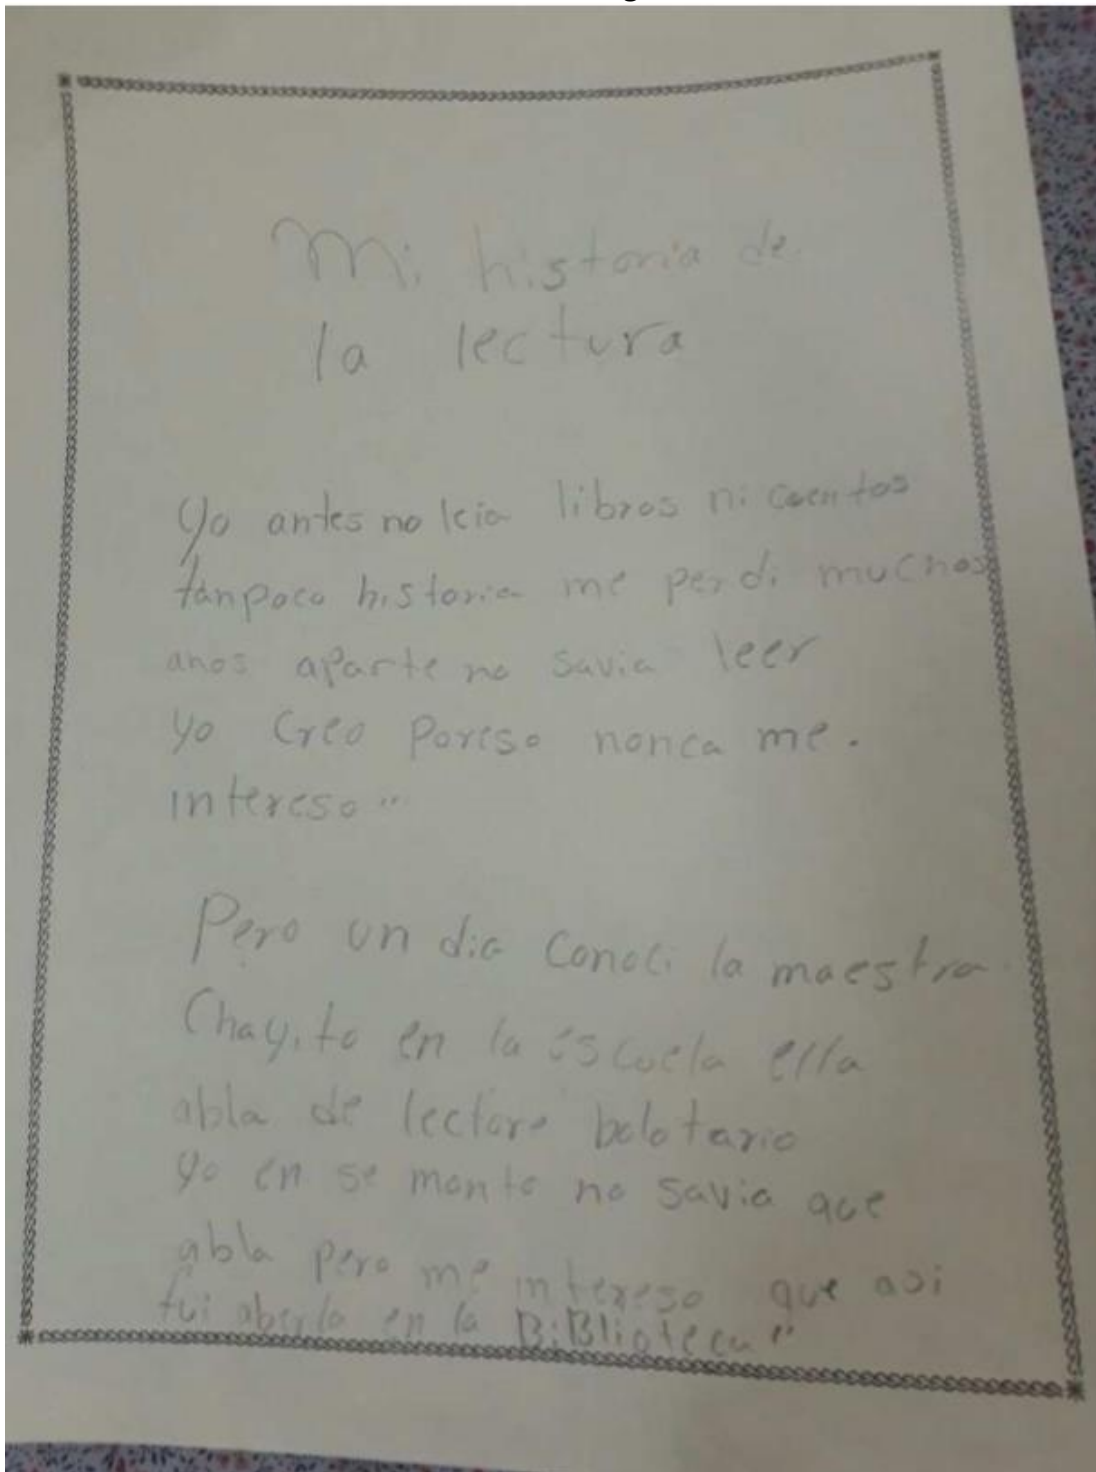 Mi historia de
la lectura
Yo antes no leia libros ni cuentos
tanpoco historia me perdi muchos
anos aparte no savia leer
yo creo poreso nonca me.
intereso"
Pero un dia conoci la maestra
Chayito en la escuela ella
abla de lectora bolotario
yo en se monto no savia que
abla pero me intereso que asi
fui aberla en la BiBlioteca"